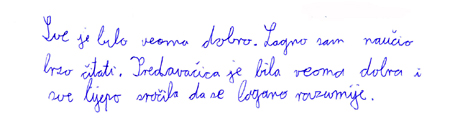 Sve je bilo veoma dobro. Lagno sam naučio
brzo čitati. Predavačica je bila veoma dobra i
sve lijepo sročila da se logano razumije.